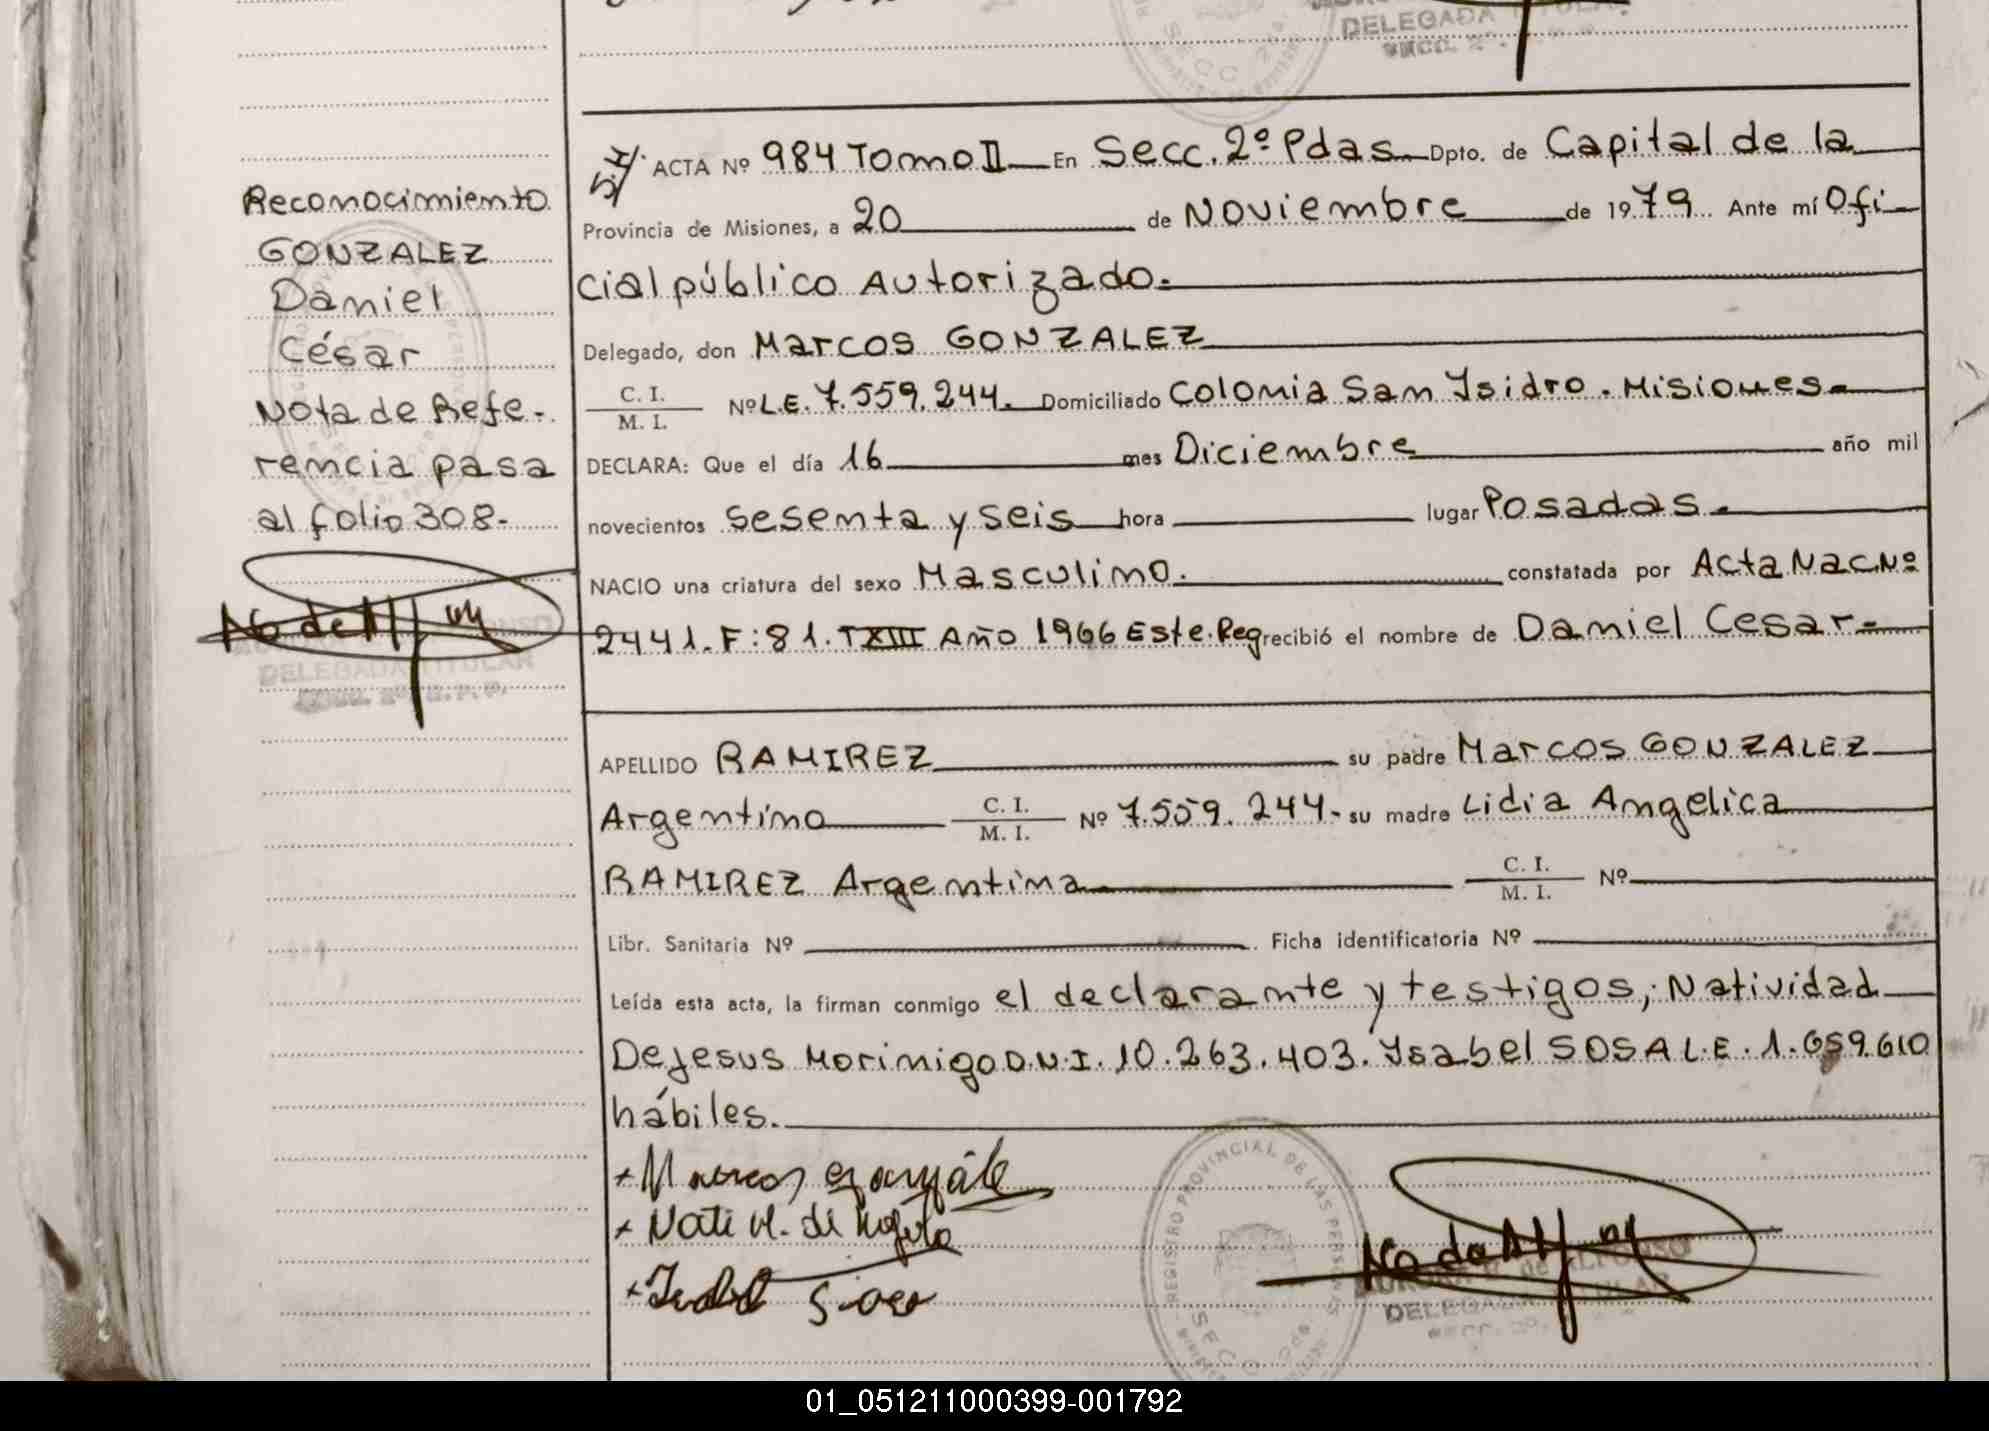 DELEGADA TITULAR
SECC. 2º
Reconocimiento
GONZALEZ
Daniel
César
Nota de Refe-
rencia pasa
al folio 308-
DELEGADA TITULAR
S/ ACTA Nº 984 Tomo II En Secc. 2º Pdas Dpto. de Capital de la
Provincia de Misiones, a 20 de Noviembre de 1979. Ante mí Ofi-
cial público Autorizado.
Delegado, don Marcos GONZALEZ
C. I.
M. I. Nº L.E. 7.559.244. Domiciliado Colonia San Ysidro. Misiones-
DECLARA: Que el día 16 mes Diciembre año mil
novecientos sesenta y seis hora lugar Posadas.
NACIO una criatura del sexo Masculino. constatada por Acta Nac. Nº
2441. F:81. TXIII Año 1966 Este. Reg recibió el nombre de Daniel Cesar-
APELLIDO RAMIREZ su padre Marcos GONZALEZ
Argentino C. I.
M. I. Nº 7.559.244- su madre Lidia Angelica
RAMIREZ Argentina C. I.
M. I. Nº
Libr. Sanitaria Nº Ficha identificatoria Nº
Leída esta acta, la firman conmigo el declarante y testigos; Natividad
De Jesus Morinigo D.N.I. 10.263.403. Ysabel SOSA L.E. 1.659.610
hábiles.
REGISTRO PROVINCIAL DE LAS PERSONAS
de ALFONSO
DELEGADA TITULAR
01_051211000399-001792